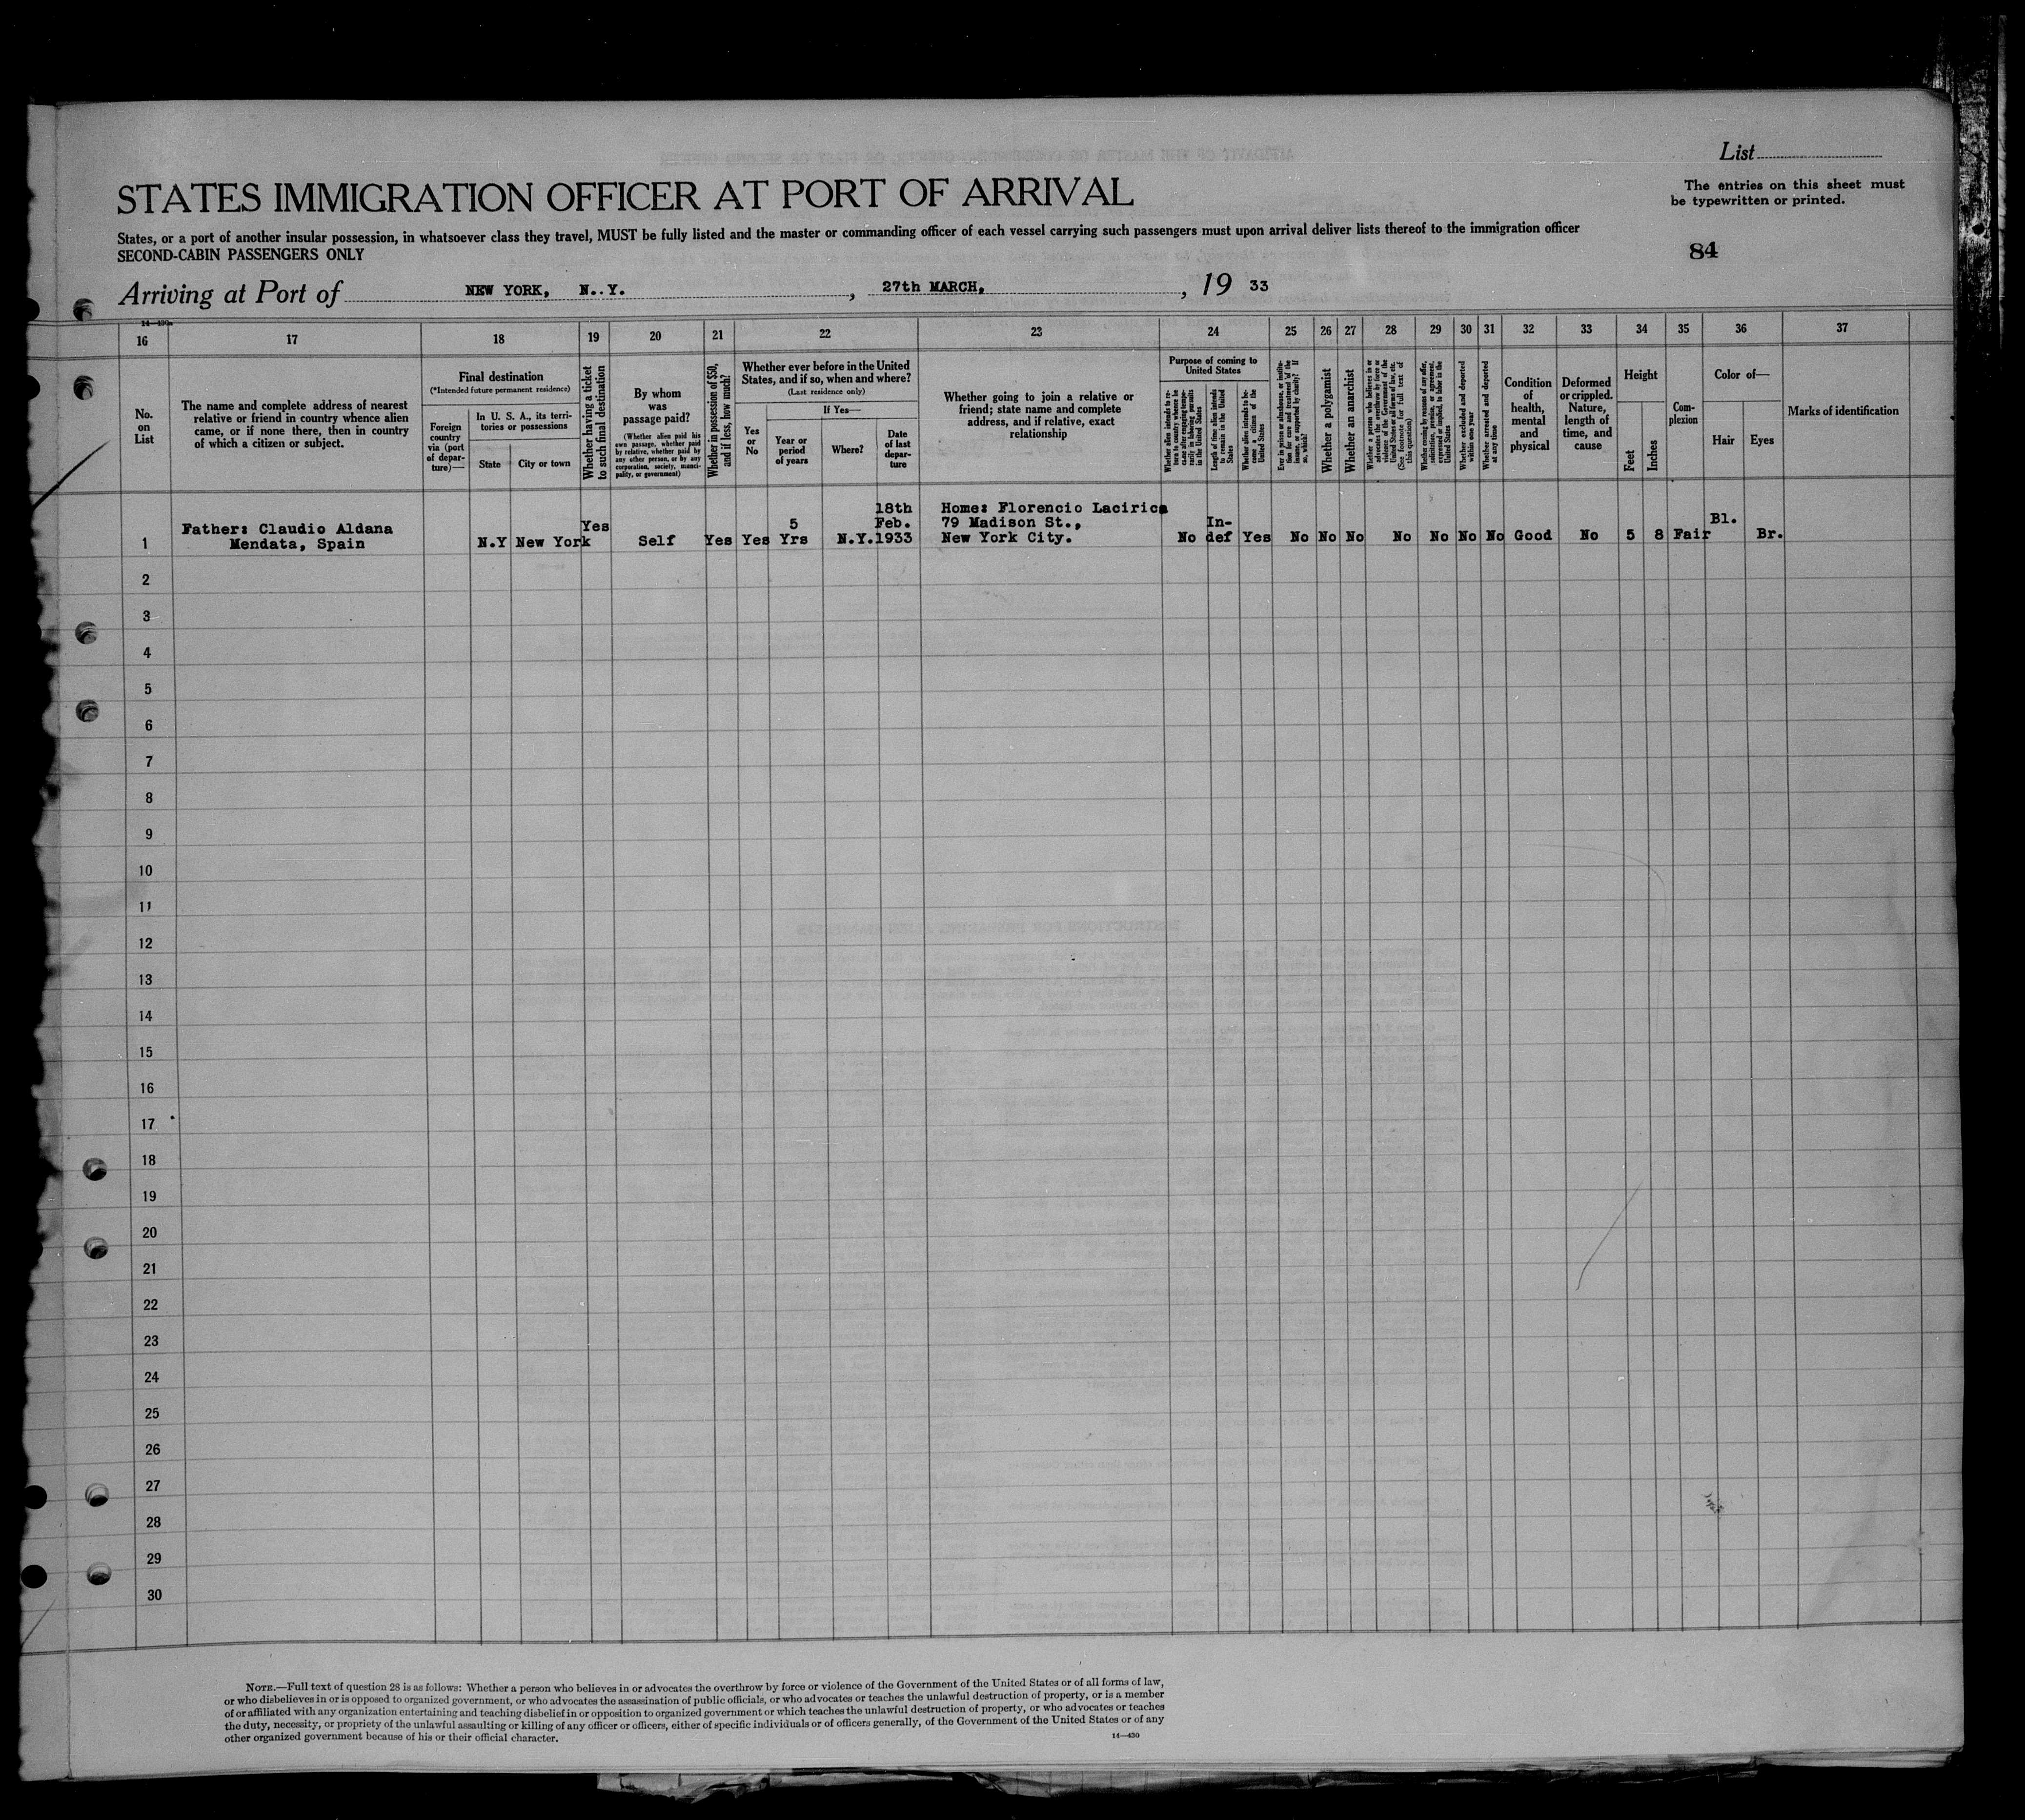 List
STATES IMMIGRATION OFFICER AT PORT OF ARRIVAL
The entries on this sheet must
be typewritten or printed.
States, or a port of another insular possession, in whatsoever class they travel, MUST be fully listed and the master or commanding officer of each vessel carrying such passengers must upon arrival deliver lists thereof to the immigration officer
SECOND-CABIN PASSENGERS ONLY
84
Arriving at Port of NEW YORK, N..Y. , 27th MARCH, , 19 33
16 17 18 19 20 21 22 23 24 25 26 27 28 29 30 31 32 33 34 35 36 37
No.
on
List
The name and complete address of nearest
relative or friend in country whence alien
came, or if none there, then in country
of which a citizen or subject.
Final destination
(*Intended future permanent residence)
Foreign
country
via (port
of depar-
ture)—
In U. S. A., its terri-
tories or possessions
State
City or town
Whether having a ticket
to such final destination
By whom
was
passage paid?
(Whether alien paid his
own passage, whether paid
by relative, whether paid by
any other person, or by any
corporation, society, munici-
pality, or government)
Whether in possession of $50,
and if less, how much?
Whether ever before in the United
States, and if so, when and where?
(Last residence only)
Yes
or
No
If Yes—
Year or
period
of years
Where?
Date
of last
depar-
ture
Whether going to join a relative or
friend; state name and complete
address, and if relative, exact
relationship
Purpose of coming to
United States
Length of time alien intends
to remain in the United
States
Whether alien intends to be-
come a citizen of the
United States
Whether a polygamist
Whether an anarchist
Whether excluded and deported
within one year
Whether arrested and deported
at any time
Condition
of
health,
mental
and
physical
Deformed
or crippled.
Nature,
length of
time, and
cause
Height
Feet
Inches
Com-
plexion
Color of—
Hair
Eyes
Marks of identification
1
Father: Claudio Aldana
Mendata, Spain
N.Y
New York
Yes
Self
Yes
Yes
5
Yrs
N.Y.
18th
Feb.
1933
Home: Florencio Lacirica
79 Madison St.,
New York City.
No
In-
def
Yes
No
No
No
No
No
No
No
Good
No
5
8
Fair
Bl.
Br.
2
3
4
5
6
7
8
9
10
11
12
13
14
15
16
17
18
19
20
21
22
23
24
25
26
27
28
29
30
NOTE.—Full text of question 28 is as follows: Whether a person who believes in or advocates the overthrow by force or violence of the Government of the United States or of all forms of law,
or who disbelieves in or is opposed to organized government, or who advocates the assassination of public officials, or who advocates or teaches the unlawful destruction of property, or is a member
of or affiliated with any organization entertaining and teaching disbelief in or opposition to organized government or which teaches the unlawful destruction of property, or who advocates or teaches
the duty, necessity, or propriety of the unlawful assaulting or killing of any officer or officers, either of specific individuals or of officers generally, of the Government of the United States or of any
other organized government because of his or their official character.
14—430